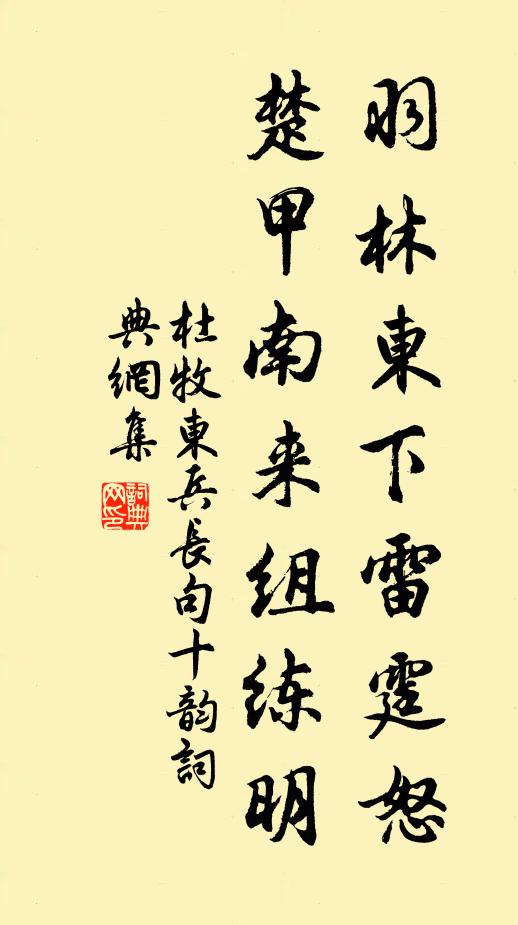 羽林東下雷霆怒
楚甲南来组练明
杜牧東兵長句十韵詞
典網集
詞典
网印